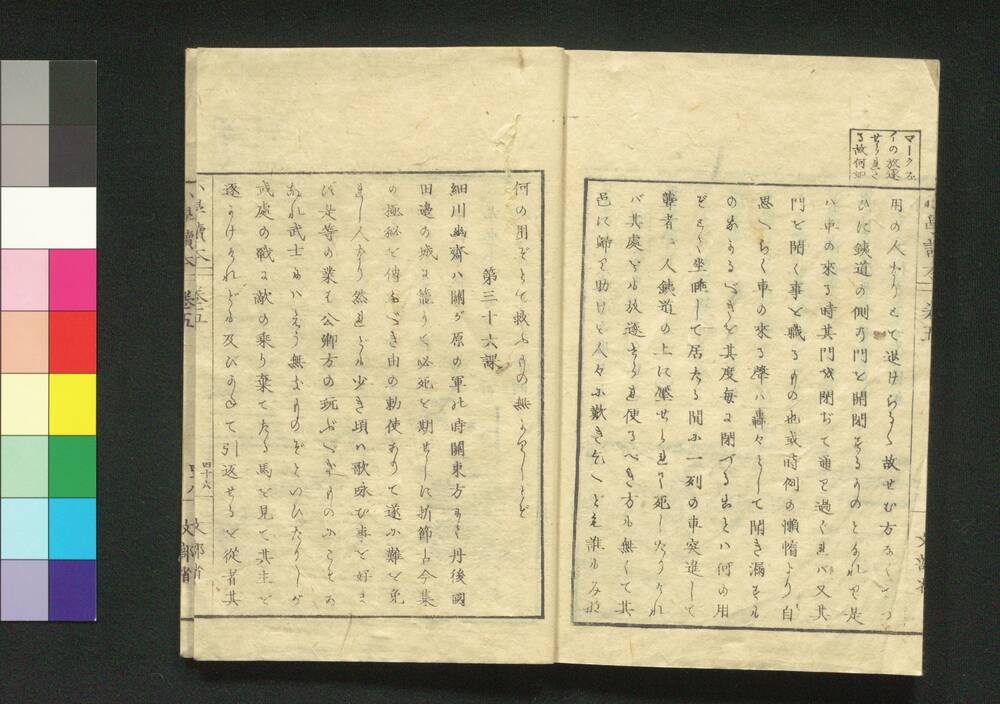 マークズ
イの放逐
せられた
る故何如
用の人なりとて退けらる故せむ方なくつ
ひに鉄道の側の門を開閉するものとなれり是
ハ車の來る時其門を閉ぢて通り過ぐれバ又其
門を開く事を職るもの也或時例の懶惰より自
思へらく車の來る聲ハ轟々として聞き漏すル
のあらるべきを其度毎に閉づる出とハ何の用
ぞとて坐睡して居たる間に一列の車突進して
聾者一人鉄道の上に壓せられて死したりけれ
バ其處をル放逐せられ使ふべき方ル無くて其
邑に帰り助けを人々に歎き乞へども誰ルみな
何の用ぞとて救ふものの無かりしとぞ
第三十六課
細川幽齋ハ關が原の軍の時關東方にて丹後國
田邊の城に籠りて必死を期せしに折節古今集
の極秘を傳ふべき由の勅使ありて遂に難を免
れし人なり然れども少き頃ハ歌詠む事を好ま
ず是等の業を公卿方の玩ぶべきものにこそあ
あれ武士にハえう無きものぞといひたりしが
或處の戰に敵の乗り棄てたる馬を見て其主を
逐ひかけけれども及びがたくて引返せしを從者其
小學讀本 巻五
四十六
文部省